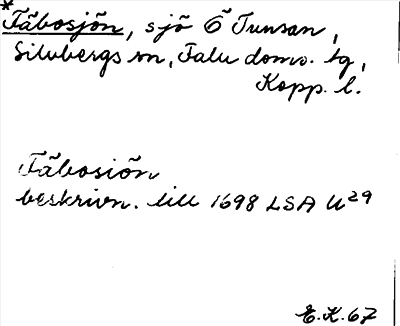 *Fäbosjön, sjö Ö Tunsan,
Silvbergs sn, Falu doms. tg,
Kopp. l.
Fäbosiön
beskrivn. till 1698 LSA U29
E.K. 67